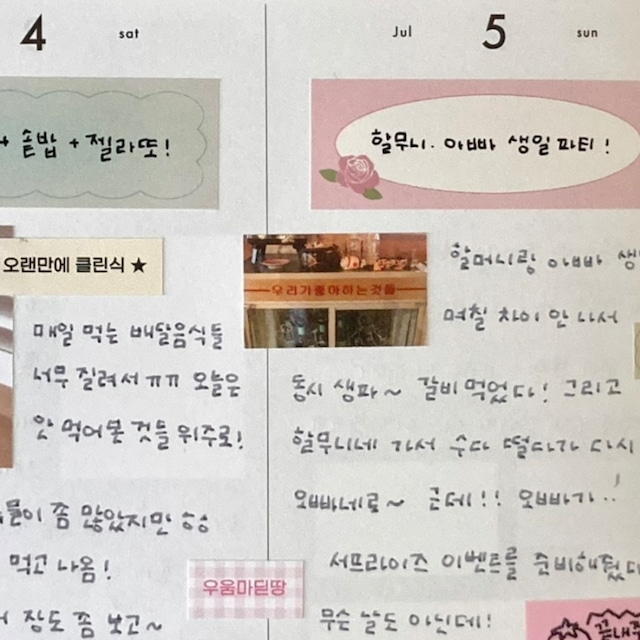 4 sat
+ 솥밥 + 젤라또!
오랜만에 클린식 ★
매일 먹는 배달음식들
너무 질려서 ㅠㅠ 오늘은
안 먹어본 것들 위주로!
좀 많았지만
먹고 나옴!
장도 좀 보고~
우움마딛땅
Jul 5 sun
할무니. 아빠 생일 파티!
우리가좋아하는것들
할머니랑 아빠 생
며칠 차이 안 나서
동시 생파~ 갈비 먹었다! 그리고
할무니네 가서 수다 떨다가 다시
오빠네로~ 근데!! 오빠가..!
서프라이즈 이벤트를 준비해줬다
무슨 날도 아닌데!